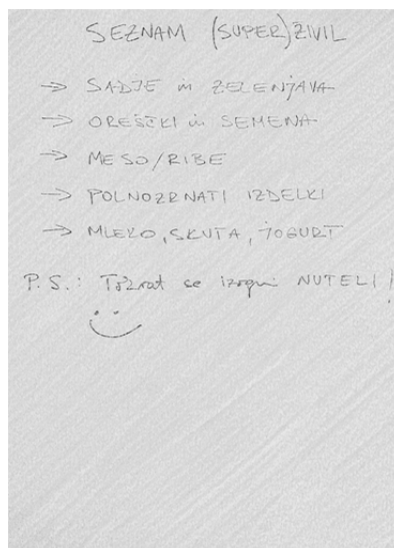 SEZNAM (SUPER)ŽIVIL
→ SADJE in ZELENJAVA
→ OREŠČKI in SEMENA
→ MESO/RIBE
→ POLNOZRNATI IZDELKI
→ MLEKO, SKUTA, JOGURT
P.S.: Tokrat se izogni NUTELI!